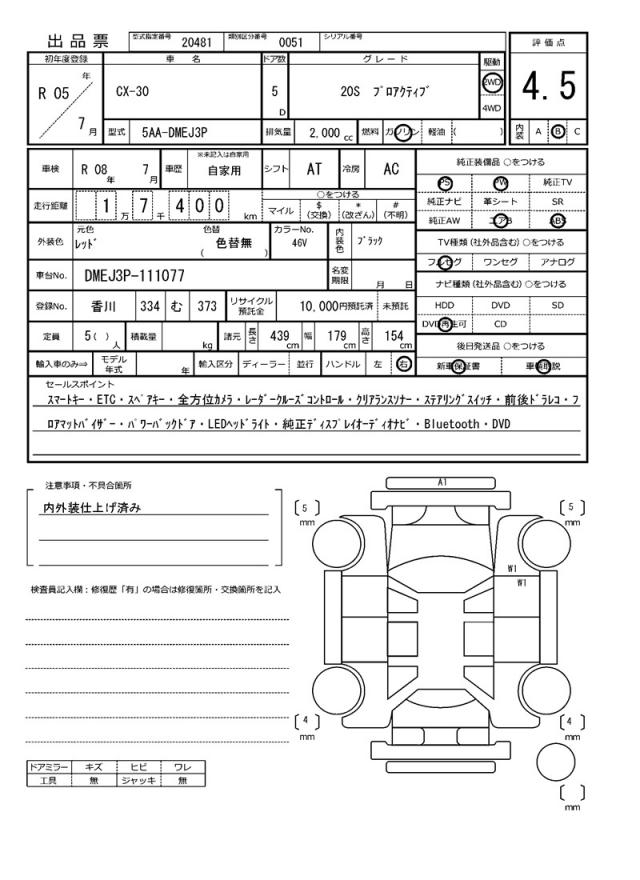 出品票 型式指定番号 20481 類別区分番号 0051 シリアル番号
評価点
4.5
内装 A B C
初年度登録 車名 ドア数 グレード 駆動
R 05 年 7 月 CX-30 5 D 20S プロアクティブ 2WD 4WD
型式 5AA-DMEJ3P 排気量 2,000 cc 燃料 ガソリン 軽油 ( )
車検 R 08 年 7 月 車歴 ※未記入は自家用 自家用 シフト AT 冷房 AC
走行距離 1 万 7 千 4 0 0 km ○をつける マイル $ (交換) * (改ざん) # (不明)
外装色 元色 レッド 色替 ( 色替無 ) カラーNo. 46V 内装色 ブラック
車台No. DMEJ3P-111077 名変期限 月 日
登録No. 香川 334 む 373 リサイクル預託金 10,000円預託済 未預託
定員 5( ) 人 積載量 kg 諸元 長さ 439 cm 幅 179 cm 高さ 154 cm
輸入車のみ⇒ モデル年式 年 輸入区分 ディーラー 並行 ハンドル 左 右
純正装備品 ○をつける
PS PW 純正TV
純正ナビ 革シート SR
純正AW エアB ABS
TV種類 (社外品含む) ○をつける
フルセグ ワンセグ アナログ
ナビ種類 (社外品含む) ○をつける
HDD DVD SD
DVD再生可 CD
後日発送品 ○をつける
新車保証書 車輌取説
セールスポイント
スマートキー・ETC・スペアキー・全方位カメラ・レーダークルーズコントロール・クリアランスソナー・ステアリングスイッチ・前後ドラレコ・フ
ロアマットバイザー・パワーバックドア・LEDヘッドライト・純正ディスプレイオーディオナビ・Bluetooth・DVD
注意事項・不具合箇所
内外装仕上げ済み
検査員記入欄：修復歴「有」の場合は修復箇所・交換箇所を記入
ドアミラー キズ ヒビ ワレ
工具 無 ジャッキ 無
A1
[ 5 ] mm
[ 5 ] mm
W1
W1
[ 4 ] mm
[ 4 ] mm
[ ] mm